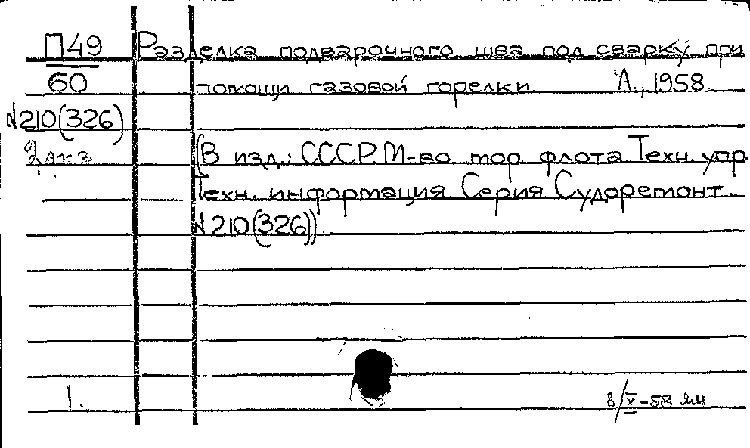 П49 Разделка подварочного шва под сварку при
60 помощи газовой горелки Л., 1958
№210(326)
2 экз (В изд.: СССР. М-во мор флота. Техн. упр
Техн. информация Серия Судоремонт.
№210(326))
1. 8/X-58